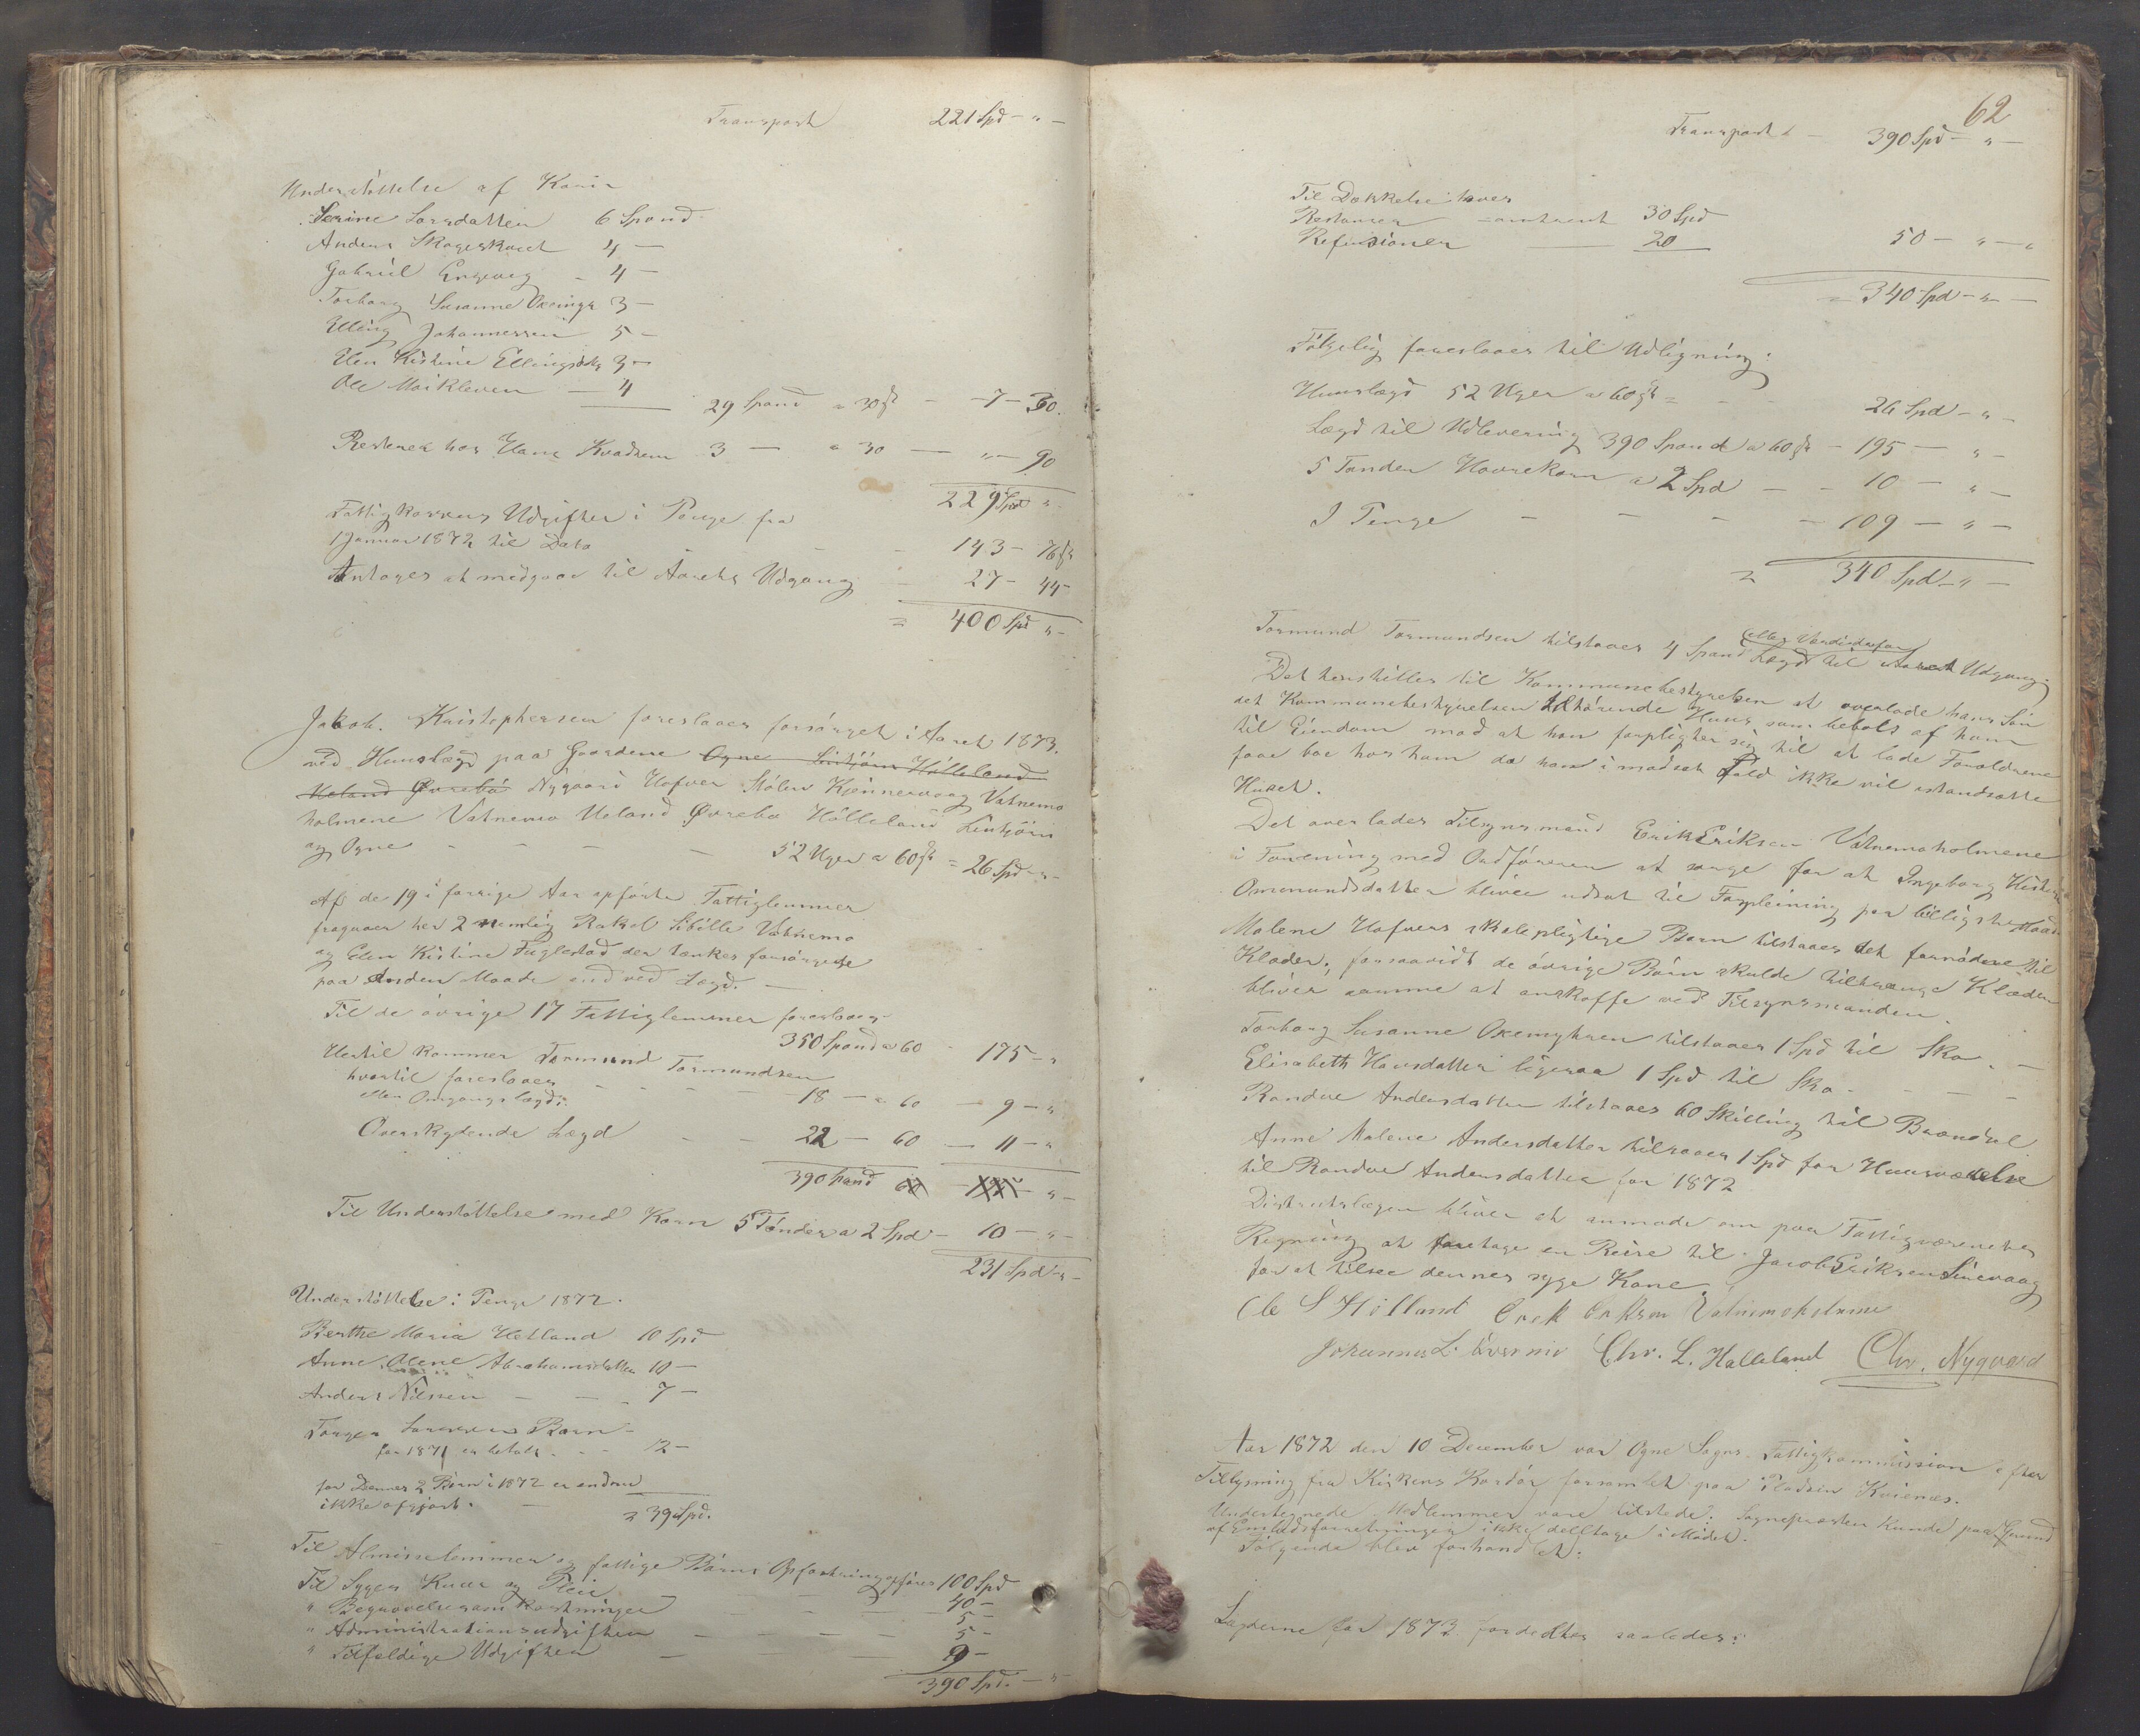 Transport 221 Spd - " -
Understøttelse af Korn
Serine Larsdatter 6 Spand
Anders Skogeskaret 4 —
Gabriel Engevig - 4 —
Torborg Susanne 3 —
Elling Johannessen 5 —
Elen Kistine Ellingsdtr 3 —
Ole Moikleven — 4
29 Spand a 30 ſk - - 7 - 30.
Resterer hos Hans Kvadsem 3 — " 30 — " - 90
229 Spd "
Fattigkassens Udgifter i Penge fra
1 Januar 1872 til Dato - - - 143 - 76 ſk
Antages at medgaae til Aarets Udgang - 27 - 44 -
= 400 Spd " -
Jakob Kristophersen foreslaaes forsørget i Aaret 1873
ved Huuslægd paa Gaardene Ogne Lintjørn Hølleland
Ueland Øvrebø Nygaard Hafver Stølen Kjennervaag Vatnemo
holmene Vatnemo Ueland Øvrebø Hølleland Lintjørn
og Ogne - - - - 52 Uger a 60 ſk = 26 Spd - " -
Af de 19 i forrige Aar opførte Fattiglemmer
fragaaer her 2 nemlig Rakel Sibille Vatnemo
og Elen Kistine Fuglestad der tænkes forsørgede
paa Anden Maade end ved Lægd. —
Til de øvrige 17 Fattiglemmer foreslaaes
350 Spand a 60 - 175 - "
Hertil kommer Tormund Tormundsen
hvortil foreslaaes - - - - 18 — a 60 — 9 — "
eller Omgangslægd:
Overskydende Lægd - - 22 — 60 — 11 — "
390 Spand 60 - 195 - " -
Til Understøttelse med Korn 5 Tønder a 2 Spd - 10 — " -
231 Spd - " -
Understøttelse i Penge 1872.
Berthe Maria Hetland 10 Spd
Anne Olene Abrahamsdatter 10 —
Anders Nilssen — — 7 —
Torger Larsens Børn -
for 1871 er betalt - - 12 —
for Dennes 2 Børn i 1872 er endnu
ikke afgjort. — = 39 Spd.
Til Almisselemmer og fattige Børns Opfostring opføres 100 Spd
Til Syges Kuur og Pleie — — — — 40 —
" Begravelsesomkostninger — — — — 5 —
" Administrationsudgifter — — — — 5 —
" Tilfældige Udgifter — — — 9 —
390 Spd. — " -
62
Transport - 390 Spd - " —
Til Dækkelse haves
Restancer — omtrent 30 Spd
Refusioner — 20 50 — " — "
= 340 Spd - " —
Følgelig foreslaaes til Udligning:
Huuslægd 52 Uger a 60 ſk = - - 26 Spd - " —
Lægd til Udlevering 390 Spand a 60 ſk - 195 — " —
5 Tønder Havrekorn a 2 Spd — - 10 — " —
I Penge — — — — 109 — " —
= 340 Spd - " —
(eller Værdi derfor)
Tormund Tormundsen tilstaaes 4 Spand Lægd til Aarets Udgang.
Det henstilles til Kommunebestyrelsen at overlade hans Søn
det Kommunebestyrelsen tilhørende Huus som bebos af ham
til Eiendom mod at han forpligter sig til at lade Forældrene
faae boe hos ham da han i modsat Fald ikke vil istandsætte
Huset.
Det overlades Tilsynsmand Erik Eriksen Vatnemoholmene
i Forening med Ordføreren at sørge for at Ingeborg Kistine
Omundsdatter bliver udsat til Forpleining paa billigste Maade
Malene Hafvers skolepligtige Børn tilstaaes det fornødne til
Klæder, forsaavidt de øvrige Børn skulde tiltrænge Klæder
bliver samme at anskaffe ved Tilsynsmanden.
Torborg Susanne Oxemyhren tilstaaes 1 Spd til Sko. —
Elisabeth Hansdatter ligesaa 1 Spd til Sko - — —
Randue Andersdatter tilstaaes 60 Skilling til Brændsel.
Anne Malene Andersdatter tilstaaes 1 Spd for Huusværelse
til Randue Andersdatter for 1872
Distriktslægen bliver at anmode om paa Fattigvæsenets
Regning at foretage en Reise til Jacob Eriksen Sirevaag
for at tilsee dennes syge Kone.
Ole S Hølland Erek Erksen Vatnemoholmene
Johannes L. Chr. L. Hølleland Chr. Nygaard
Aar 1872 den 10 December var Ogne Sogns Fattigkommission efter
Tillysning fra Kirkens Kordør forsamlet paa Pladsen Kvienæs.
Undertegnede Medlemmer vare tilstede. Sognepræsten kunde paa Grund
af Embedsforretninger ikke deltage i Mødet.
Følgende blev forhandlet:
Lægderne for 1873 fordeltes saaledes: